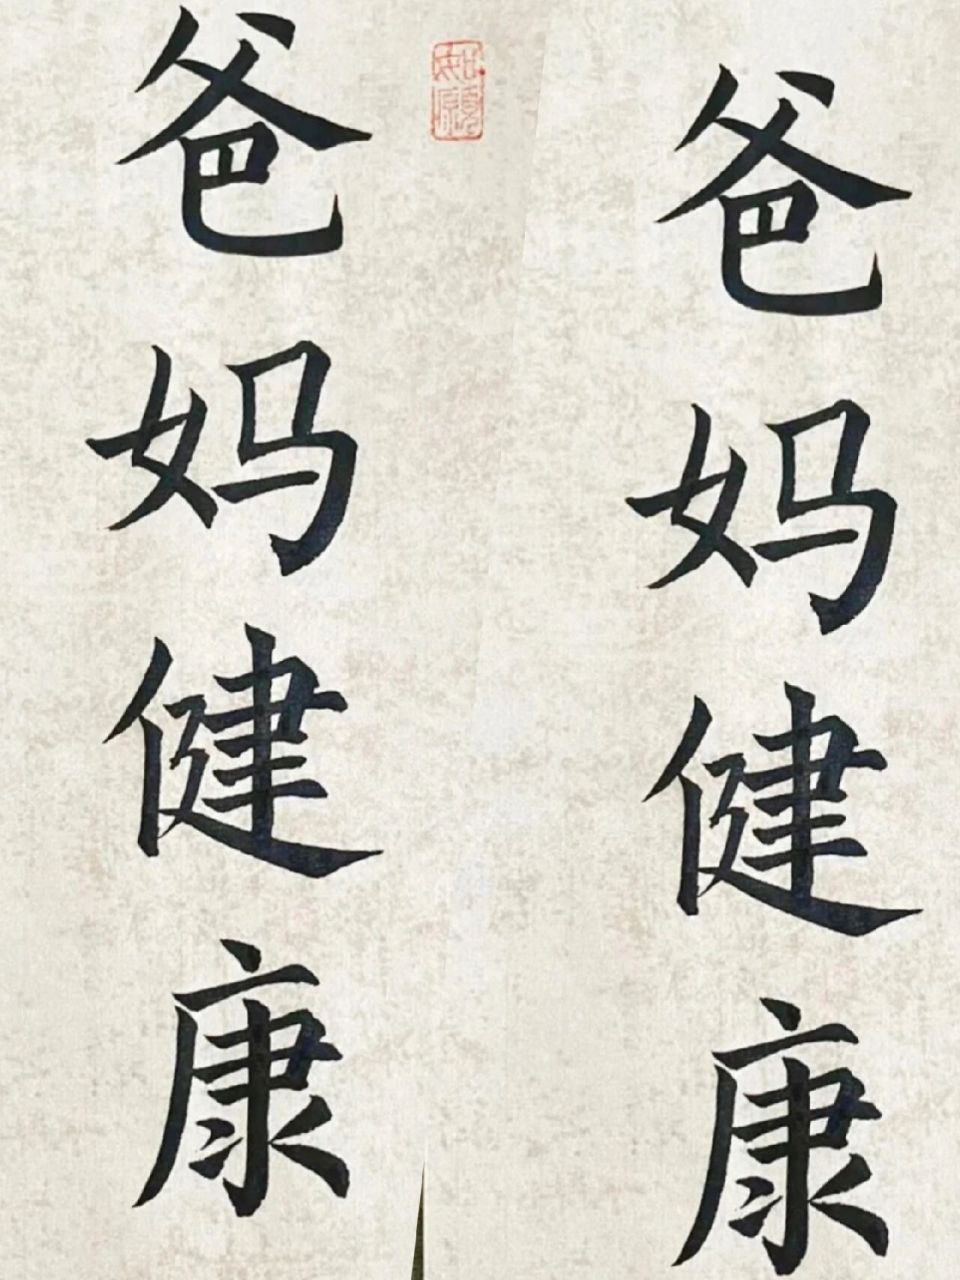 爸妈健康
如願
爸妈健康